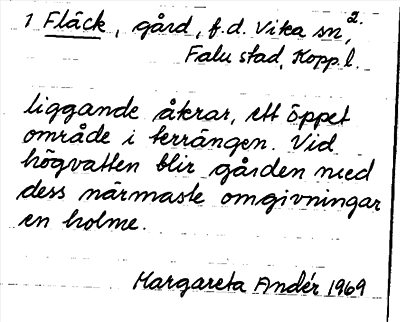 1 Fläck, gård, f.d. Vika sn, 2.
Falu stad, Kopp.l.
liggande åkrar, ett öppet
område i terrängen. Vid
högvatten blir gården med
dess närmaste omgivningar
en holme.
Margareta Andér 1969